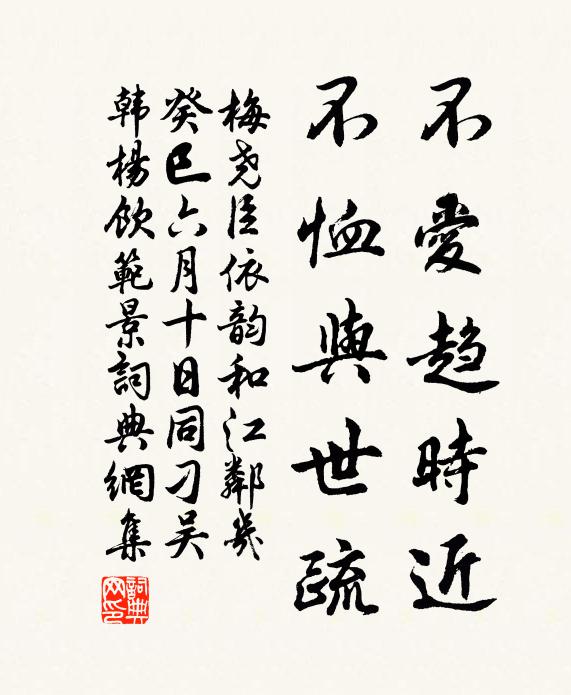 不愛趨時近
不恤與世疏
梅堯臣依韵和江鄰幾
癸巳六月十日同刁吴
韩楊飲範景詞典網集
詞典網印